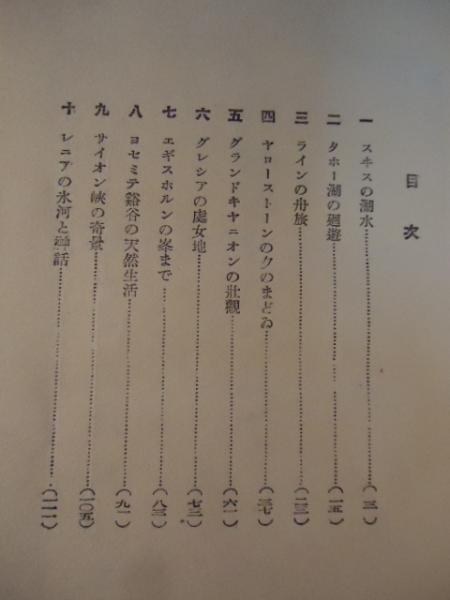 目次
一 スヰスの湖水……(三)
二 タホー湖の廻遊……(一五)
三 ラインの舟旅……(二三)
四 ヤローストーンの夕のまどゐ……(三七)
五 グランドキヤニオンの壯觀……(六一)
六 グレシアの處女地……(七三)
七 エギスホルンの峯まで……(八三)
八 ヨセミテ谿谷の天然生活……(九一)
九 サイオン峽の奇景……(一〇五)
十 レニアの氷河と神話……(一一一)